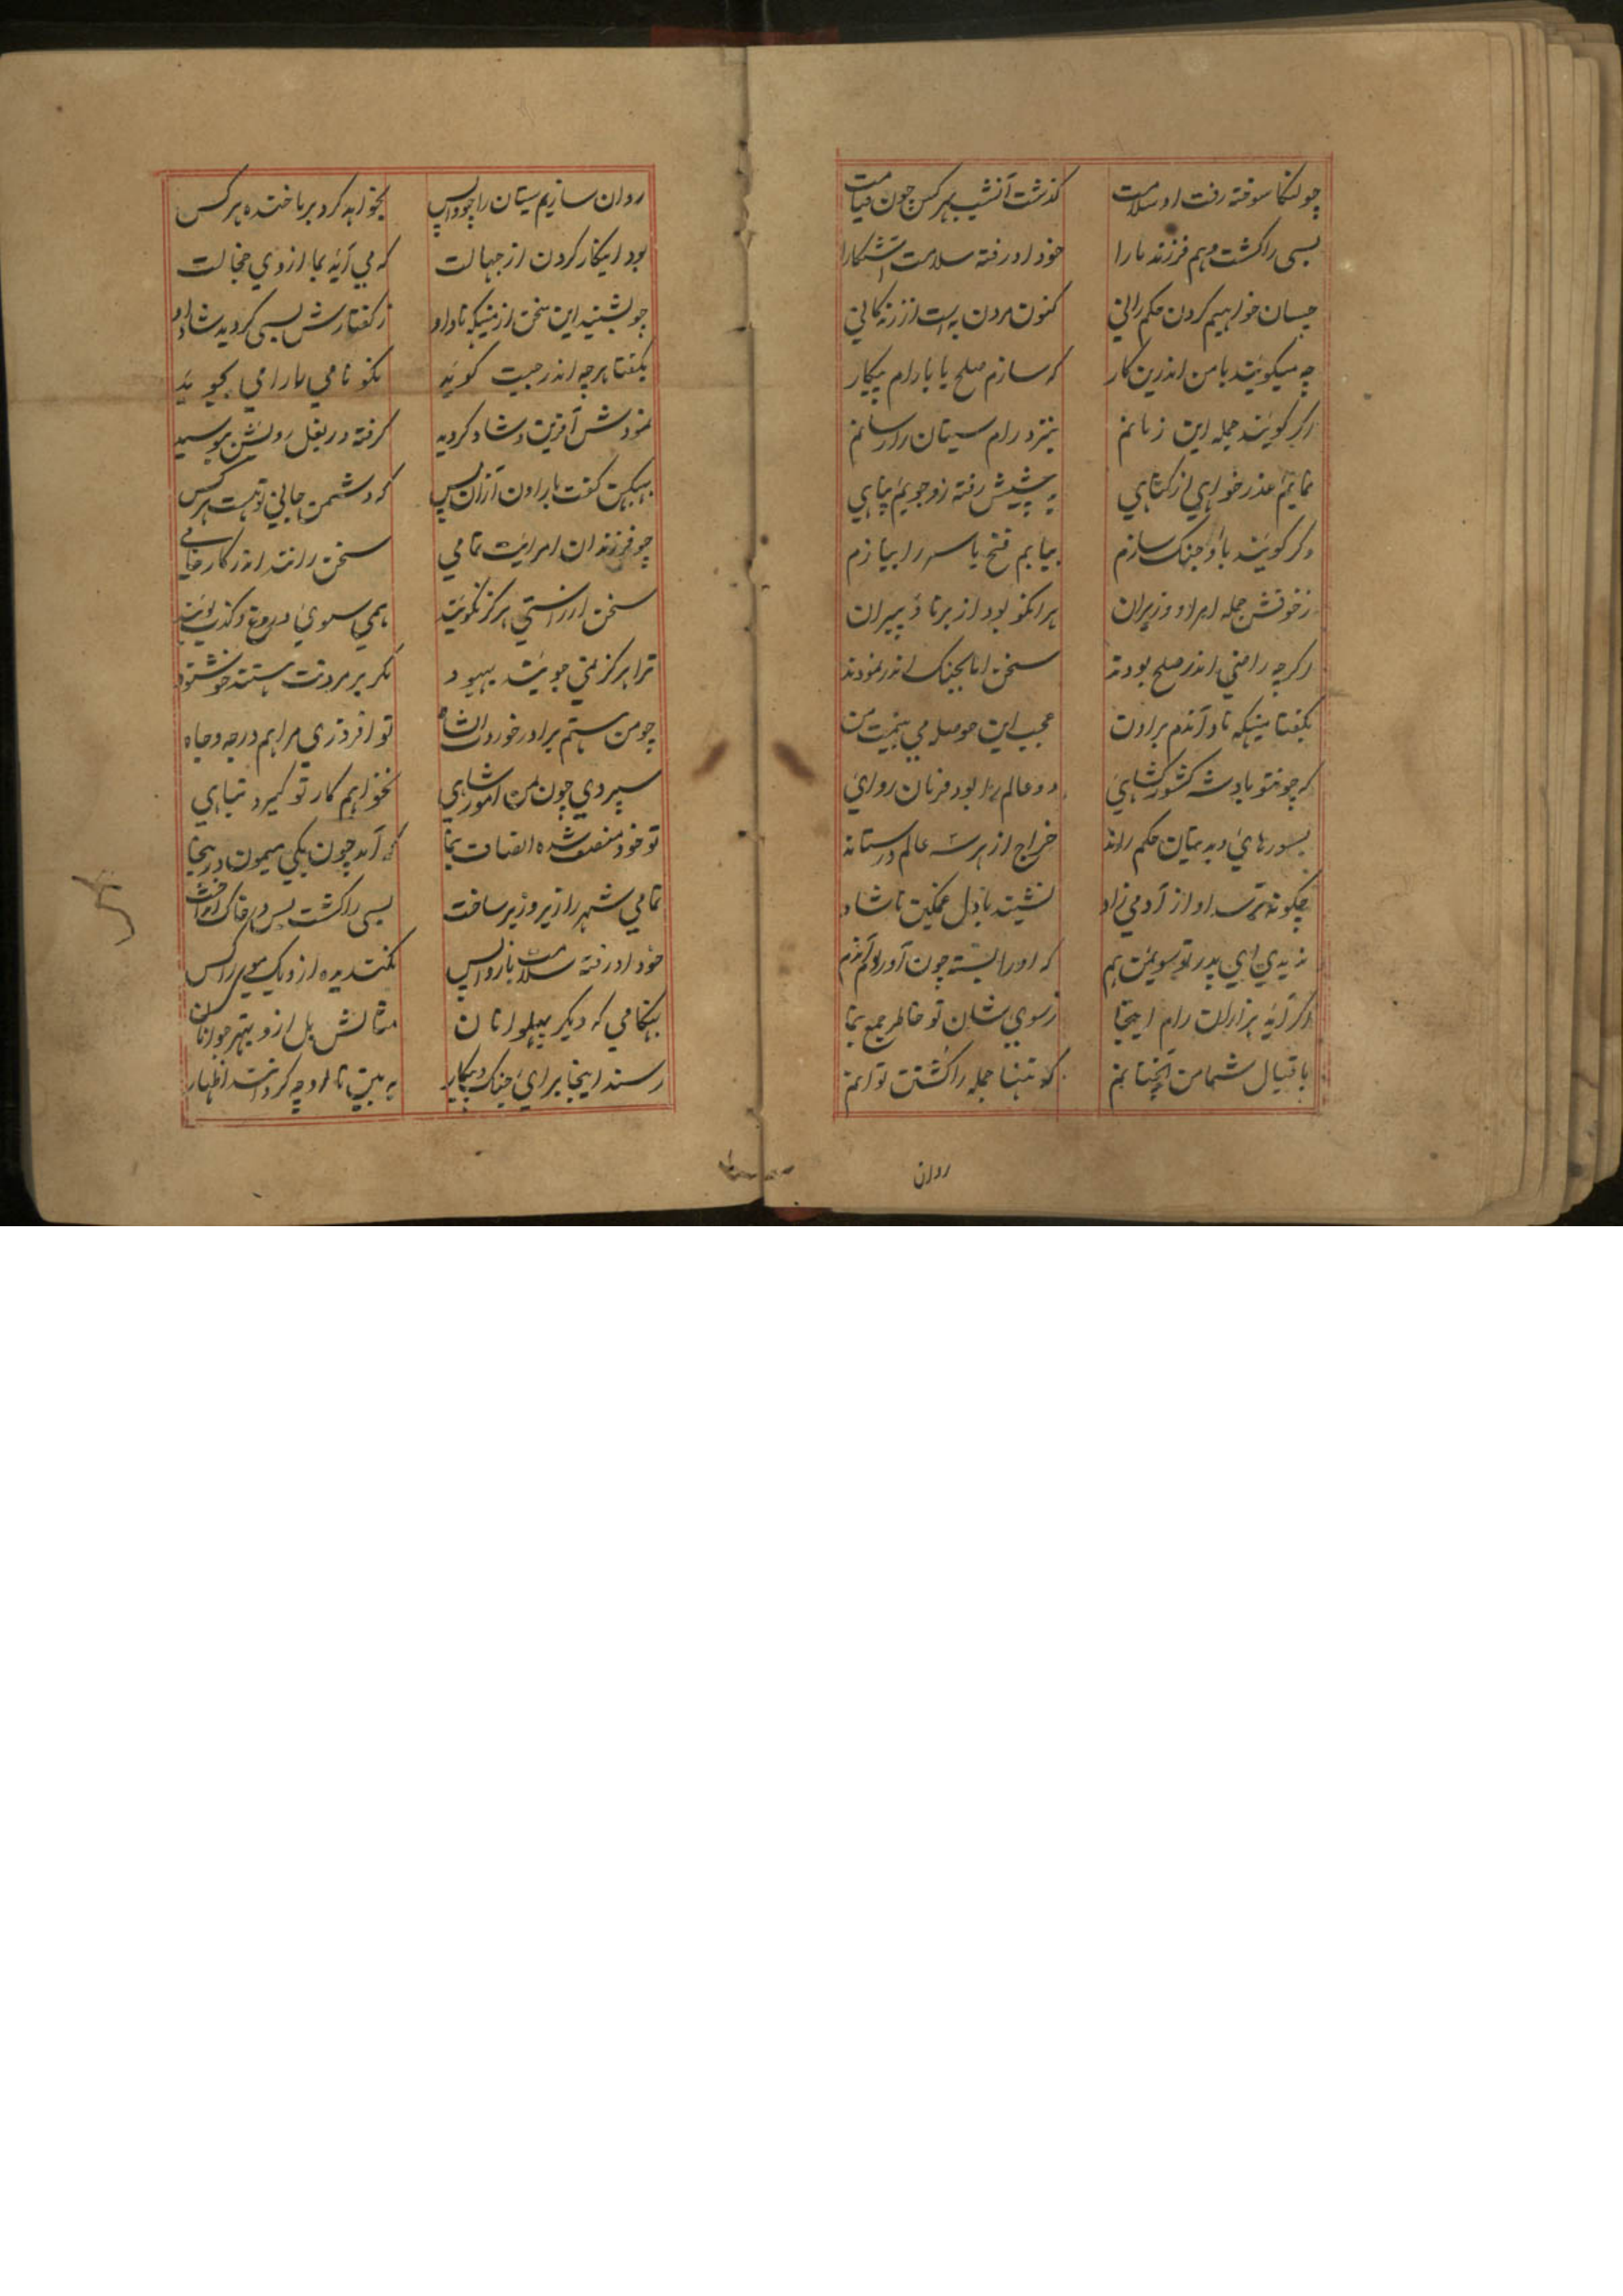 چو لنکا سوخته رفت او سلامت کذشت آتش بهر کس چون قیامت
بسی را کشت و هم فرزند ما را خود او رفته سلامت آشکارا
چسان خواهیم کردن حکم رانی کنون مردن به است از زندکانی
چه میکویند با من اندرین کار که سازم صلح یا با رام پیکار
اکر کویند جمله این زمانم بنزد رام سیتان را رسانم
نمایم عذر خواهی از کناهی به پیشش رفته زو جویم پناهی
وکر کویند با او جنک سازم بیابم فتح یا سر را ببازم
ز خوفش جمله امرا و وزیران هر انکو بود از برنا و پیران
اکرچه راضی اندر صلح بودند سخن اما بجنک اندر نمودند
بکفتا مینکه ناد آندم براون عجب این حوصله می بینمت من
که چو نتو بادشه کشور کشایی دو عالم را بود فرمان روای
بسورهای و دیوتان حکم راند خراج از هر سه عالم در ستاند
چکونه ترسد او از آدمی زاد نشیند با دل غمکین ناشاد
ندیدی ای پدر تو سویمن هم که اورا بسته چون آوردم آندم
اکر آید هزاران رام اینجا ز سوی شان تو خاطر جمع بنما
باقبال شما من آنچنانم که تنها جمله را کشتن توانم
روان
روان سازیم سیتان را چو واپس بخواهد کرد بر ما خنده هر کس
بود اینکار کردن از جهالت که می آید بما از وی خجالت
چو بشنید این سخن از مینکه ناد او ز کفتارش بسی کردید شاد او
بکفتا هرچه اندر جیت کوید نکو نامی ما را می بجوید
نمودش آفرین و شاد کردید کرفته در بغل رویش ببوسید
ببهکن کفت با راون از آن پس که دشمن جانی تو هست هر کس
چو فرزندان امرایت تمامی سخن رانند اندر کار خامی
سخن از راستی هرکز نکویند همی سوی دروغ و کذب پویند
ترا هرکز نمی جویند بهبود مکر بر مردنت هستند خوشنود
چو من هستم برادر خوردت ای شاه تو افزودی مرا هم درجه و جاه
سپردی چون بمن امور شاهی نخواهم کار تو کیرد تباهی
تو خود منصف شده انصاف بنما که آمد چون یکی میمون درینجا
تمامی شهر را زیر و زبر ساخت بسی را کشت پس در خاک انداخت
خود او رفته سلامت باز واپس نکندیده ازو یک موی را کس
بهنکامی که دیکر پهلوانان مثالش بل ازو بهتر جوانان
رسند اینجا برای جنک و پیکار به بین تا او چه کردانند اظهار